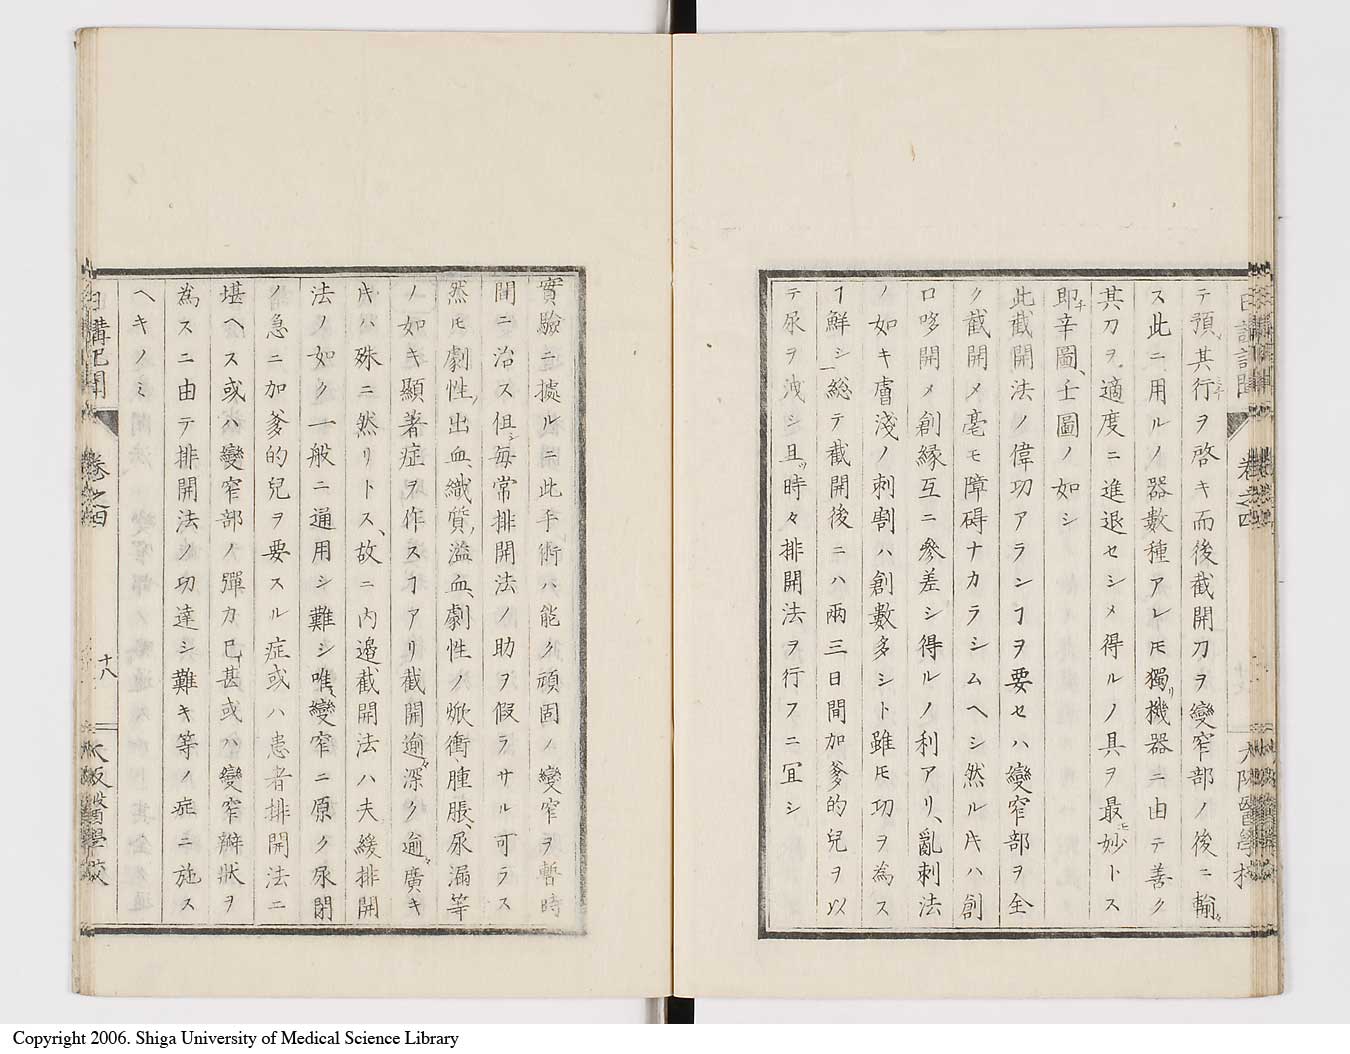 テ預其行ヲ啓キ而後截開刀ヲ變窄部ノ後ニ輸
ス此ニ用ルノ器數種アレ𪜈獨リ機器ニ由テ善ク
其刀ヲ適度ニ進退セシメ得ルノ具ヲ最モ妙トス
即チ辛圖、壬圖ノ如シ
此截開法ノ偉功アランヿヲ要セハ變窄部ヲ全
ク截開メ毫モ障碍ナカラシムヘシ然ル𪜈ハ創
口哆開メ創縁互ニ參差シ得ルノ利アリ、亂刺法
ノ如キ膚淺ノ刺割ハ創數多シト雖𪜈功ヲ為ス
ヿ鮮シ總テ截開後ニハ兩三日間加爹的兒ヲ以
テ尿ヲ洩シ且ツ時々排開法ヲ行フニ冝シ
日講記聞 卷之四 大阪醫學校
實驗ニ據ルニ此手術ハ能ク頑固ノ變窄ヲ暫時
間ニ治ス但シ毎常排開法ノ助ヲ假ラサル可ラス
然𪜈劇性出血、織質溢血、劇性ノ焮衝腫脹、尿漏等
ノ如キ顯著症ヲ作スヿアリ截開逾深ク逾廣キ
𪜈ハ殊ニ然リトス、故ニ内邉截開法ハ夫緩排開
法ノ如ク一般ニ通用シ難シ唯變窄ニ原ク尿閉
ノ急ニ加爹的兒ヲ要スル症或ハ患者排開法ニ
堪ヘス或ハ變窄部ノ彈力已甚或ハ變窄辦狀ヲ
為スニ由テ排開法ノ功達シ難キ等ノ症ニ施ス
ヘキノミ
日講記聞 卷之四 十八 大阪醫學校
Copyright 2006. Shiga University of Medical Science Library